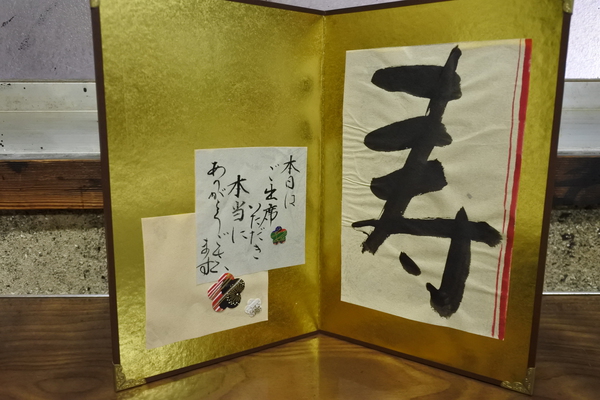 寿
本日は
ご出席
いただき
本当に
ありがとうござい
ます